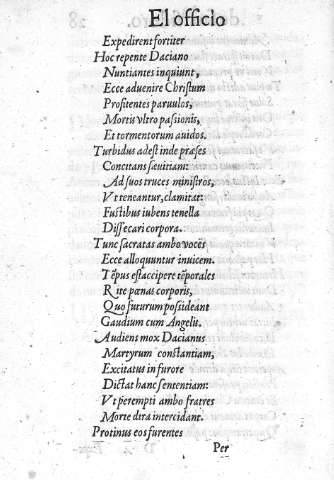 El officio
Expedirent fortiter
Hoc repente Daciano
Nuntiantes inquiunt,
Ecce aduenire Christum
Profitentes paruulos,
Mortis vltro passionis,
Et tormentorum auidos.
Turbidus adest inde præses
Concitans sæuitiam:
Ad suos truces ministros,
Vt teneantur, clamitat:
Fustibus iubens tenella
Dissecari corpora.
Tunc sacratas ambo voces
Ecce alloquuntur inuicem.
Tẽpus est accipere tẽporales
Rite pœnas corporis,
Quo futurum possideant
Gaudium cum Angelis.
Audiens mox Dacianus
Martyrum constantiam,
Excitatus in furore
Dictat hanc sententiam:
Vt perempti ambo fratres
Morte dira intercidant.
Protinus eos furentes
Per